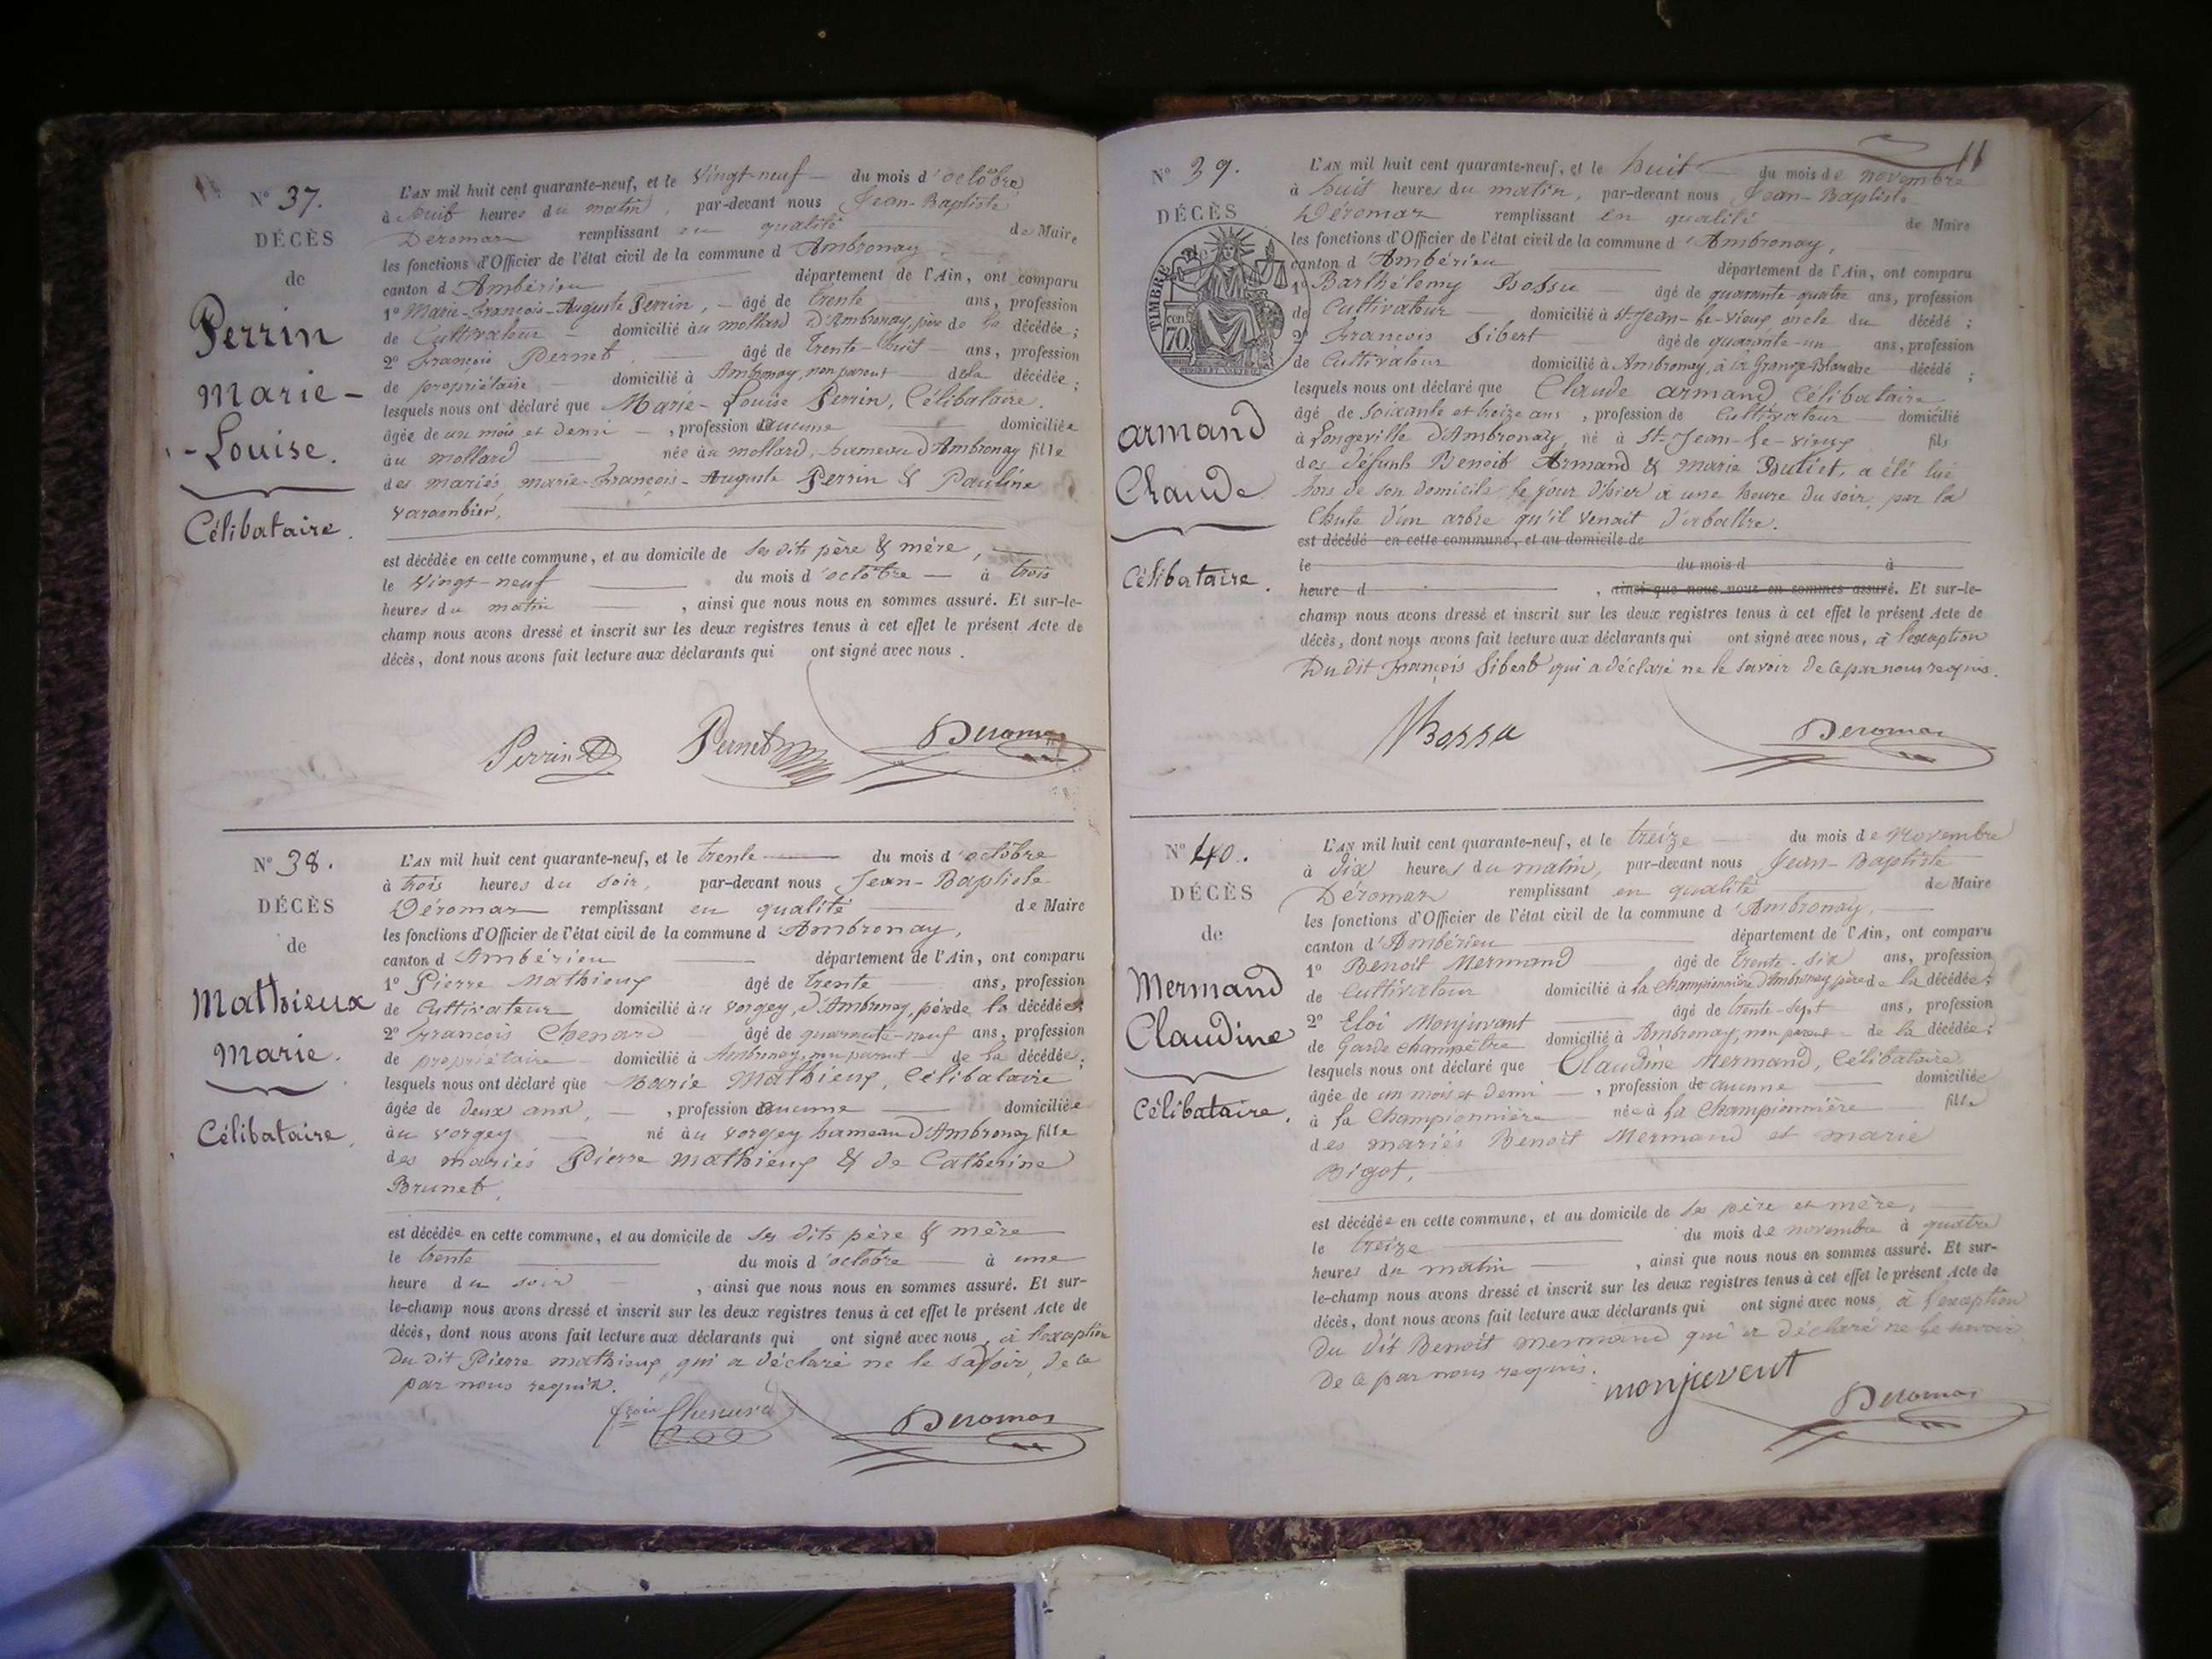 N° 37.
DÉCÈS
de
Perrin
Marie-
-Louise.
Célibataire.
L'AN mil huit cent quarante-neuf, et le vingt-neuf du mois d'octobre
à huit heures du matin, par-devant nous Jean-Baptiste
Déromas remplissant en qualité de Maire
les fonctions d'Officier de l'état civil de la commune d'Ambronay,
canton d'Ambérieu département de l'Ain, ont comparu
1° Marie-François-Auguste Perrin, âgé de trente ans, profession
de Cultivateur domicilié au mollard d'Ambronay, père de la décédée;
2° François Pernet âgé de trente-huit ans, profession
de propriétaire domicilié à Ambronay, non parent de la décédée;
lesquels nous ont déclaré que Marie-Louise Perrin, Célibataire.
âgée de un mois et demi, profession aucune domiciliée
au mollard née au mollard, hameau d'Ambronay fille
des mariés marie-François-Auguste Perrin & Pauline
Varambier,
est décédée en cette commune, et au domicile de ses dits père & mère,
le vingt-neuf du mois d'octobre à trois
heures du matin, ainsi que nous nous en sommes assuré. Et sur-le-
champ nous avons dressé et inscrit sur les deux registres tenus à cet effet le présent Acte de
décès, dont nous avons fait lecture aux déclarants qui ont signé avec nous.
Perrin Pernet Deromas
N° 38.
DÉCÈS
de
Mathieux
Marie.
Célibataire.
L'AN mil huit cent quarante-neuf, et le trente du mois d'octobre
à trois heures du soir, par-devant nous Jean-Baptiste
Déromas remplissant en qualité de Maire
les fonctions d'Officier de l'état civil de la commune d'Ambronay,
canton d'Ambérieu département de l'Ain, ont comparu
1° Pierre Mathieux âgé de trente ans, profession
de Cultivateur domicilié au vorgey, d'Ambronay, père de la décédée;
2° François Chenard âgé de quarante-neuf ans, profession
de propriétaire domicilié à Ambronay, non parent de la décédée;
lesquels nous ont déclaré que Marie Mathieux, Célibataire
âgée de deux ans, profession aucune domiciliée
au vorgey né au vorgey hameau d'Ambronay fille
des mariés Pierre Mathieux & de Catherine
Brunet,
est décédée en cette commune, et au domicile de ses dits père & mère
le trente du mois d'octobre à une
heure du soir, ainsi que nous nous en sommes assuré. Et sur-
le-champ nous avons dressé et inscrit sur les deux registres tenus à cet effet le présent Acte de
décès, dont nous avons fait lecture aux déclarants qui ont signé avec nous, à l'exception
du dit Pierre mathieux, qui a déclaré ne le savoir, de ce
par nous requis.
Chenard Deromas
11
N° 39.
DÉCÈS
TIMBRE
cen
70
armand
Claude
Célibataire.
L'AN mil huit cent quarante-neuf, et le huit du mois de novembre
à huit heures du matin, par-devant nous Jean-Baptiste
Déromas remplissant en qualité de Maire
les fonctions d'Officier de l'état civil de la commune d'Ambronay,
canton d'Ambérieu département de l'Ain, ont comparu
1° Barthélemy Bossu âgé de quarante-quatre ans, profession
de Cultivateur domicilié à St-Jean-le-Vieux, oncle du décédé;
2° François Sibert âgé de quarante-un ans, profession
de Cultivateur domicilié à Ambronay, à la Grange-Blanche décédé;
lesquels nous ont déclaré que Claude armand, Célibataire
âgé de soixante et treize ans, profession de Cultivateur domicilié
à Longeville d'Ambronay, né à St-Jean-le-vieux fils
des défunts Benoit Armand & Marie, a été tué
hors de son domicile, le jour d'hier à une heure du soir, par la
Chute d'un arbre qu'il venait d'abattre.
est décédé en cette commune, et au domicile de
le du mois d à
heure d, ainsi que nous nous en sommes assuré. Et sur-le-
champ nous avons dressé et inscrit sur les deux registres tenus à cet effet le présent Acte de
décès, dont nous avons fait lecture aux déclarants qui ont signé avec nous, à l'exception
Du dit François Sibert qui a déclaré ne le savoir de ce par nous requis.
Bossu Deromas
N° 40.
DÉCÈS
de
Mermand
Claudine
Célibataire.
L'AN mil huit cent quarante-neuf, et le treize du mois de Novembre
à dix heures du matin, par-devant nous Jean-Baptiste
Déromas remplissant en qualité de Maire
les fonctions d'Officier de l'état civil de la commune d'Ambronay,
canton d'Ambérieu département de l'Ain, ont comparu
1° Benoit Mermand âgé de trente-six ans, profession
de Cultivateur domicilié à la Championnière d'Ambronay père de la décédée;
2° Eloi Monjuvant âgé de trente-sept ans, profession
de Garde champêtre domicilié à Ambronay, non parent de la décédée;
lesquels nous ont déclaré que Claudine Mermand, Célibataire
âgée de un mois et demi, profession de aucune domiciliée
à la Championnière née à la Championnière fille
des mariés Benoit Mermand et marie
Bigot,
est décédée en cette commune, et au domicile de ses père et mère,
le treize du mois de novembre à quatre
heures du matin, ainsi que nous nous en sommes assuré. Et sur-
le-champ nous avons dressé et inscrit sur les deux registres tenus à cet effet le présent Acte de
décès, dont nous avons fait lecture aux déclarants qui ont signé avec nous, à l'exception
du dit Benoit Mermand qui a déclaré ne le savoir
de ce par nous requis.
monjuvent Deromas